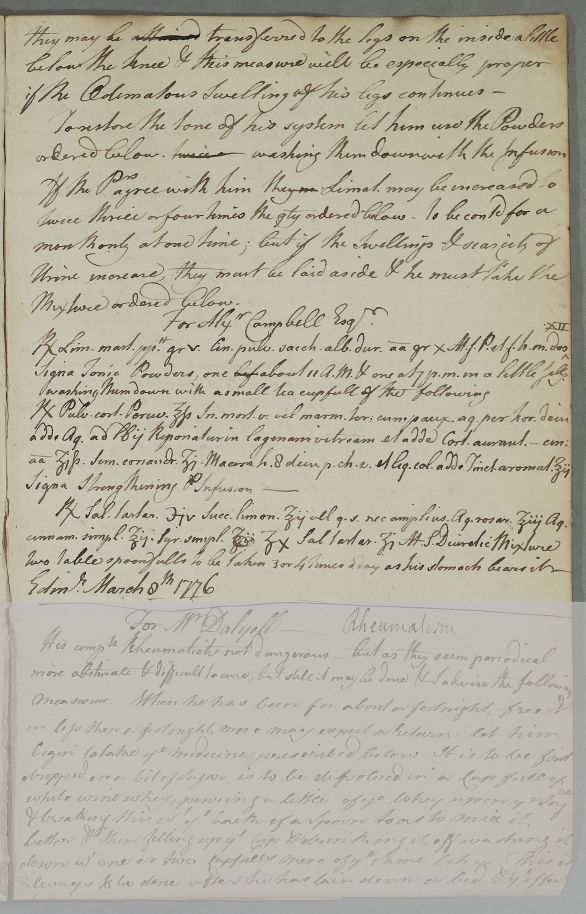 they may be attained transferred to the legs on the inside a little
below the knee & this measure will be especially proper
if the Œdematous Swelling of his legs continues —
To restore the tone of his system let him use the Powders
ordered below. twice washing them down with the Infusion
If the Prs agree with him they Limat. may be increased to
twice thrice or four times the qty ordered below - to be contd for a
month only at one time; but if the Swellings & scarcity of
Urine increase, they must be laid aside & he must take the
Mixture ordered below.
For Alexr Campbell Esqr.
℞ Lim. mart. ppt. gr v. Cin. pulv. sacch. alb. dur. āā gr x M. f. P. et f. h. m. dos XII
Signa Tonic Powders, one about 11 A.M. & one at 7 p.m. in a little jelly
washing them down with a small tea cupfull of the following
℞ Pulv. cort. Peruv. ℥ſs In. mort. v. vel marm. ter; cum paux. aq. per hor. dein
adde Aq. ad ℔ij Reponatur in lagenam vitream et adde Cort. aurant. — cin:
āā ʒiſs. Sem. coriandr. ʒj. Macera h. 8 dein p. ch. e. et liq. col. adde Tinct. aromat. ℥ij
Signa Strengthening Infusion —
℞ Sal. tartar. ℈iv Succ. limon. ℥ij vel q. s. nec amplius. Aq. rosar. ℥iij Aq.
cinnam. simpl. ℥ij. Syr. simpl. ʒx Sal tartar. ʒj M. S. Diuretic Mixture
two table spoonfulls to be taken 3 or 4 times a day as his stomach bears it
Edinr. March 8th 1776
For Mr Dalyell — Rheumatism
His compts Rheumatick not dangerous — but as they seem periodical
more obstinate & difficult to cure; but still it may be done & I advise the following
Measures. When he has been for about a fortnight free &
in less than a fortnight more may expect a return let him
begin to take ye Medicine prescribed below. It is to be first
dropped on a bit of Sugar, is to be dissolved in a Cup full of
white wine whey, pouring a little of ye Whey upon ye
& breaking this wt ye back of a spoon so as to mix it
better & then filling up ye cup & drinking it off washing it
down wt one or two cupfulls more of ye same whey. This is
always to be done after he has lain down in bed & ye effect